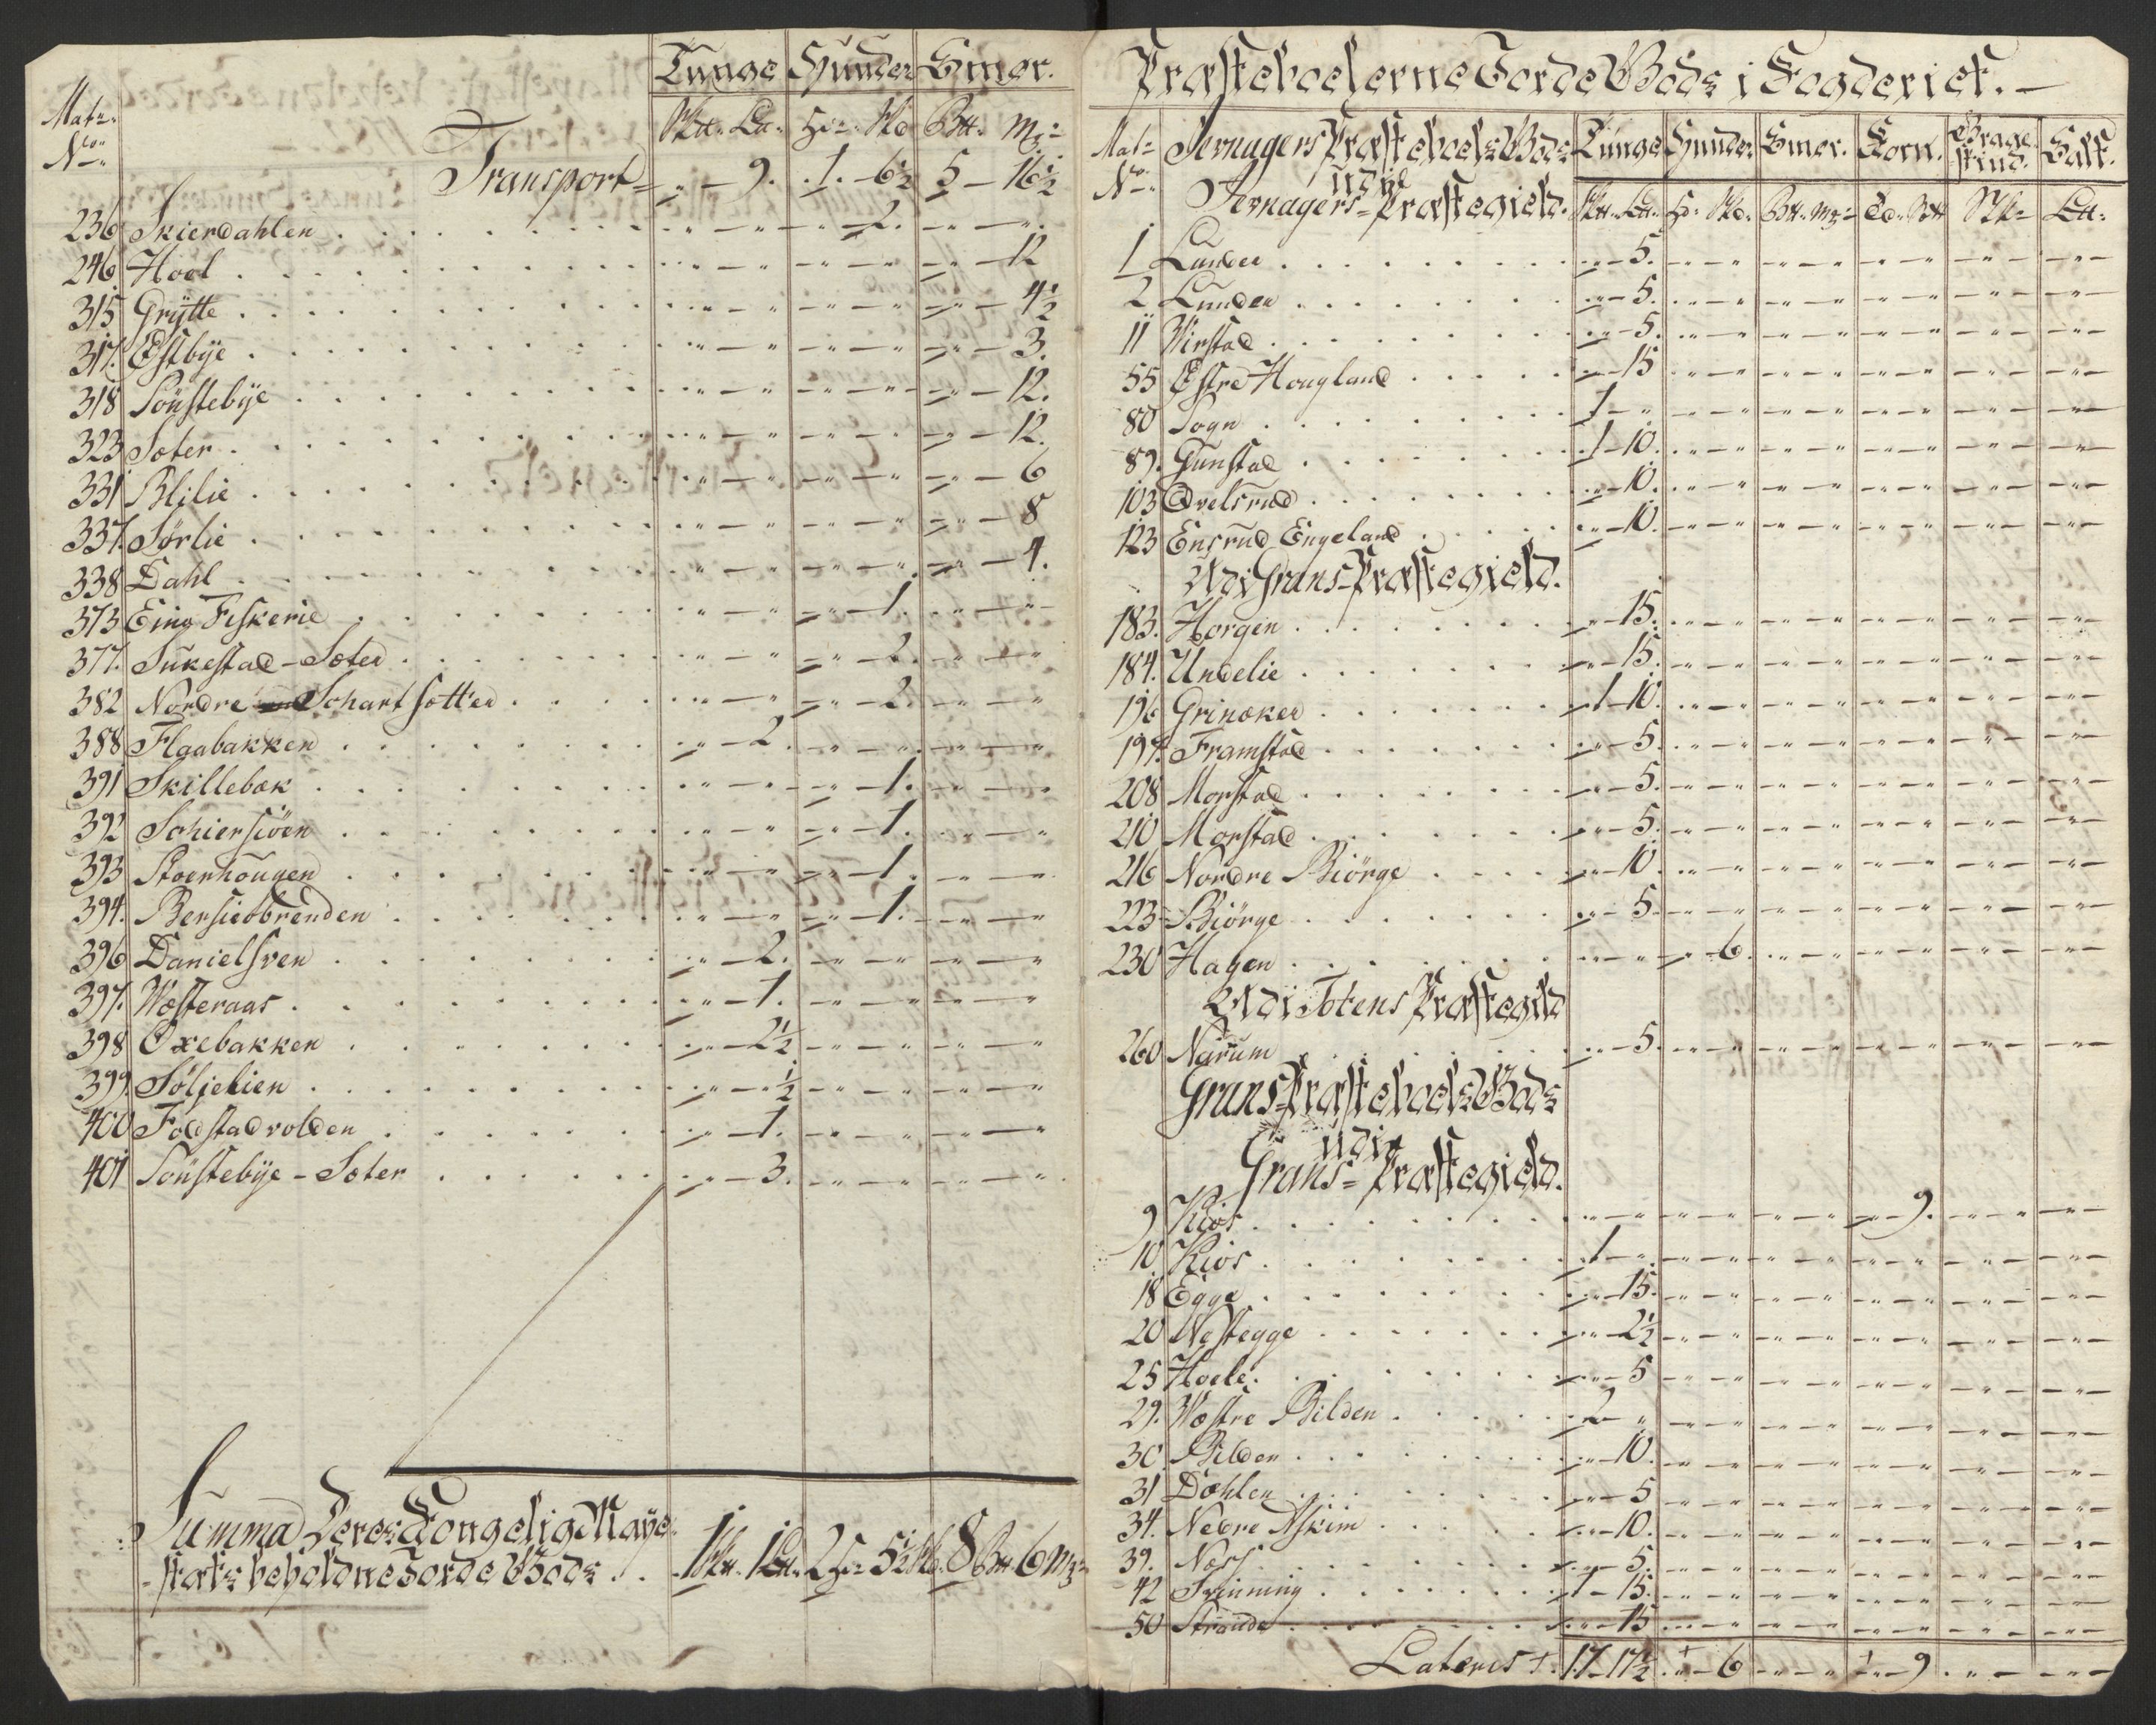 Tunge Huuder Smør.
Matr: No: Skt. Lt. Hd: Skd Btt: Mr:
Transport „ — 9. 1. — 6½ 5 — 16½
236 Skierdahlen . . . „ — „ „ — 2. „ — „
246. Hool . . . „ — „ „ — „ „ — 12
315 Grÿtte . . . „ — „ „ — „ „ — 4½
317. Østbÿe . . . „ — „ „ — „ „ — 3.
318 Sønstebÿe . . . „ — „ „ — „ „ — 12.
323 Sæter . . . „ — „ „ — „ „ — 12.
331 Blilie . . . „ — „ „ — „ „ — 6
337. Sørlie . . . „ — „ „ — „ „ — 8
338 Dahl . . . „ — „ „ — „ „ — 4.
373 Eina Fiskerie . . . „ — „ „ — 1. „ — „
377. Sukestad-Sæter . . . „ — „ „ — 2. „ — „
382 Nordre Schartsætter . . . „ — „ „ — 2. „ — „
388 Flaabakken . . . „ — 2. „ — „ „ — „
391 Skillebæk . . . „ — „ „ — 1. „ — „
392 Schiersiøen . . . „ — „ „ — 1. „ — „
393 Stoerhougen . . . „ — „ „ — 1. „ — „
394. Bersietbrenden . . . „ — „ „ — 1. „ — „
396 Danielsven . . . „ — 2. „ — „ „ — „
397. Wæsteraas . . . „ — 1. „ — „ „ — „
398 Oxebakken . . . „ — 2½ „ — „ „ — „
399. Søljelien . . . „ — ½ „ — „ „ — „
400 Foldstadvolden . . . „ — 1. „ — „ „ — „
401 Sønstebÿe-Sæter . . . „ — 3. „ — „ „ — „
Summa Deres Kongelig Maye-
stæts beholdne Jorde Gods . . 1 Skt. 1 Lt. 2 Hd: 5½ Skd. 8 Btt. 6 Mr:
Præsteboelerne Jorde Gods i Fogderiet. —
Matr: No: Jevnagers Præsteboels Gods Tunge Huuder Smør. Korn. Salt.
udi
Jevnagers-Præstegield. Skt. Lt. Hd: Skd. Btt. Mr: Td: Stk: Lt:
1 Lunder . . . „ — 5.
2 Lunden . . . „ — 5.
11 Wirstad . . . „ — 5.
55 Østre Hougland . . . „ — 15
80 Sogn . . . 1 — „
89. Gunstad . . . 1 — 10.
103 . . . „ — 10.
123 Ensrud Engeland . . . „ — 10.
Udi Grans-Præstegield.
183. Horgen . . . „ — 15.
184. Undelie . . . „ — 15.
196 Grinaker . . . 1 — 10.
197. Framstad . . . „ — 5.
208 Morstad . . . „ — 5.
210 Morstad . . . „ — 5.
216 Nordre Biørge . . . „ — 10.
223 Biørge . . . „ — 5.
230 Hagen . . . „ — „ „ — 6.
Udi Totens Præstegild
260 Narum . . . „ — 5.
Grans Præsteboels Gods
udi
Grans-Præstegield.
9 Kios . . . „ — 9.
10 Kios . . . 1 — „
18 Egge . . . „ — 15.
20 Nestegge . . . „ — 2½
25 Hoele . . . „ — 5
29. Wæstre Bilden . . . 2 — „
30 Bilden . . . „ — 10.
31 Dæhlen . . . „ — 5
34. Nedre Askim . . . „ — 10.
39. Næss . . . „ — 5.
42 . . . 1 — 15.
50 Strande . . . „ — 15
Lateris . 17 — 17½ „ — 6 „ — „ „ — 9. „ — „ —